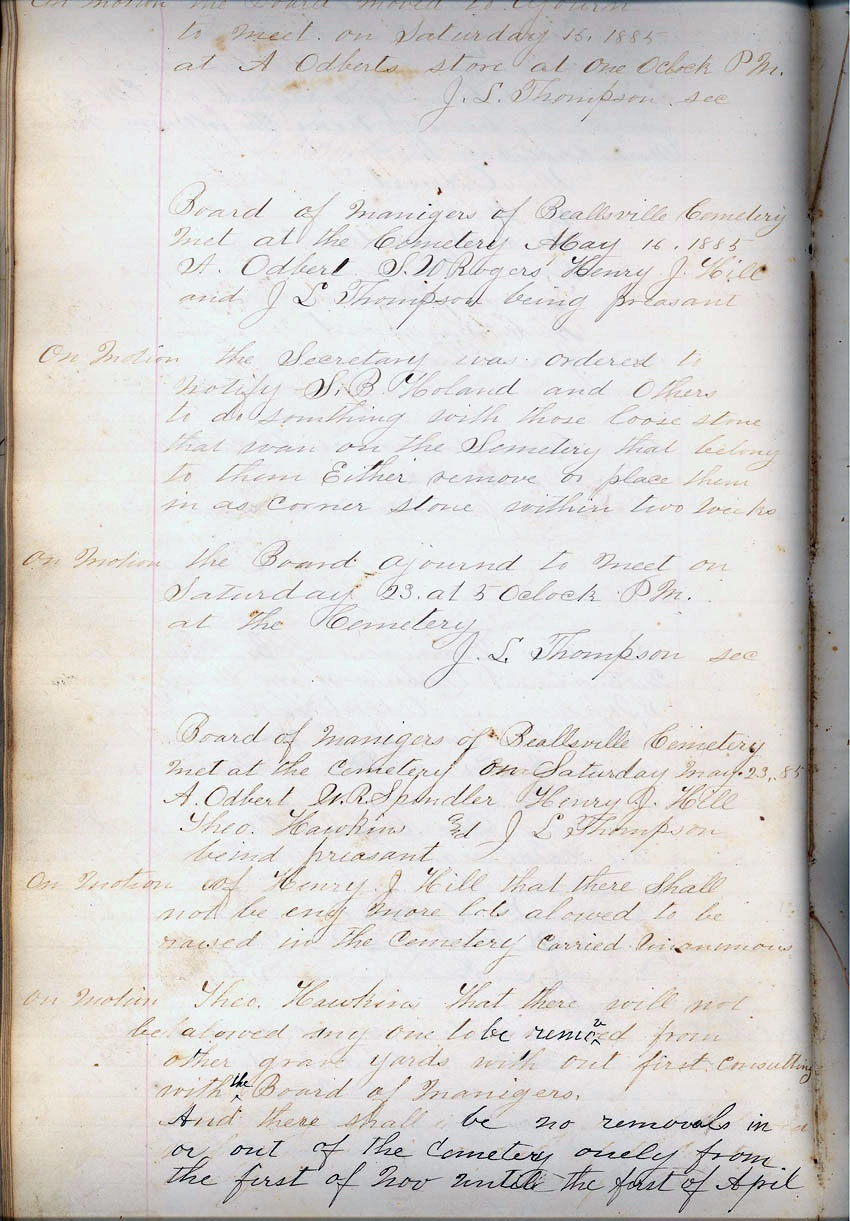 On Motion the Board moved to ajourn
to meet. on Saturday 16. 1885
at A Odberts store at One Oclock P M.
J. L. Thompson sec
Board of Manigers of Beallsville Cemetery
Met at the Cemetery May 16. 1885
A. Odbert S. W Rogers Henry J. Hill
and J L Thompson being preasant
On Motion the Secretary was ordered to
Notify S. B. Holand and Others
to do somthing with those loose stone
that wan on the Semetery that belong
to them Either remove or place them
in as corner stone within two weeks
On Motion the Board ajournd to meet on
Saturday 23. at 5 Oclock P M.
at the Cemetery
J. L. Thompson sec
Board of Manigers of Beallsville Cemetery
Met at the Cemetery on Saturday May. 23,. 85
A. Odbert W. R. Spindler Henry J. Hill
Theo. Hawkins and J L Thompson
beind preasant
On Motion of Henry J Hill that there shall
not be eny more lots alowed to be
raised in the Cemetery Carried Unanimous
On Motion Theo. Hawkins that there will not
be alowed any one to be removed from
other grave yards with out first consulting
with the Board of Manigers.
And there shall be no removals in
or out of the Cemetery onely from
the first of Nov untill the first of April